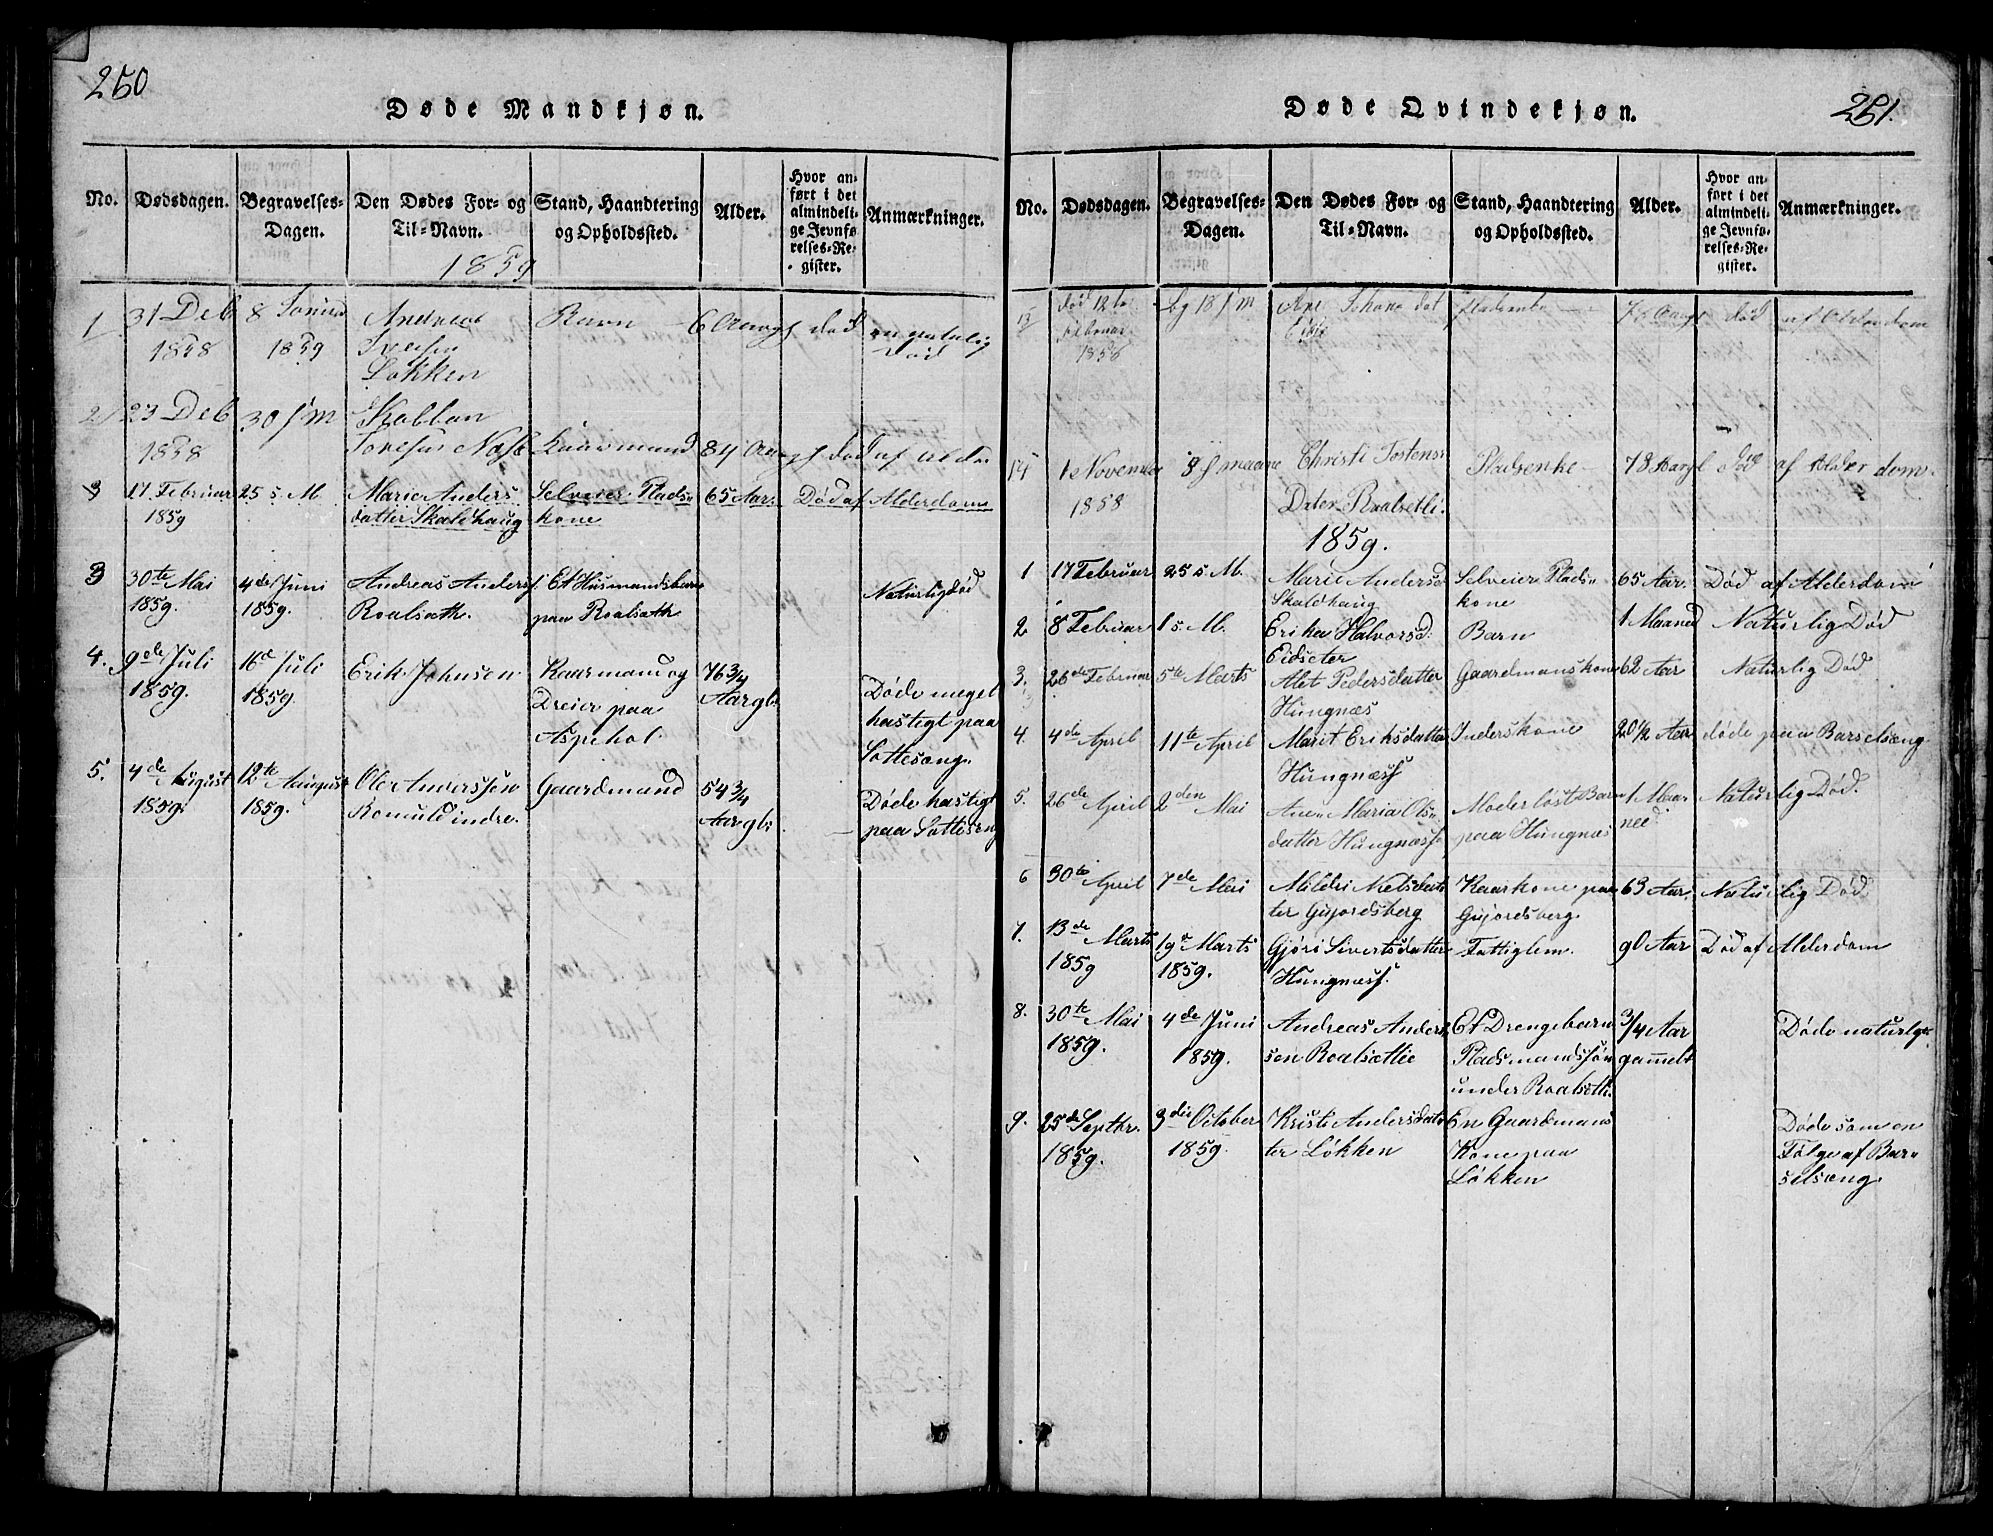 250
Døde Mandkjøn.
No. Dødsdagen. Begravelses-Dagen. Den Dødes For- og Til-Navn. Stand, Haandtering og Opholdssted. Alder. Hvor anført i det almindelige Jevnførelses-Register. Anmærkninger.
1859
1 31 Deb 8
1858 1859 Andreas
Løkken
Barn 6 død
død
2 23 Deb 30 s M
1858
84 død af
3 17. Februar 25 s. M. Marie Anders Selveier Plads 65 Aar. Død af Alderdom
1859 datter Skaldhaug kone
3 30te Mai 4de Juni Andreas Anders Et Husmandsbarn Naturlig død
1859. 1859. Roalsæth. paa Roalsæth
4. 9de Juli 16de Juli Erik Johnsen Kaarmand og 76 3/4
1859. 1859. Dreier paa Aar gl. Døde meget
Aspehol. hastigt paa
Sottesæng.
5. 4de August 12te August Ole Anderssen Gaardmand 54 3/4
1859. 1859. Romuld indre. Aar gl. Døde hastigt
paa Sottesæng
251.
Døde Qvindekjøn.
No. Dødsdagen. Begravelses-Dagen. Den Dødes For- og Til-Navn. Stand, Haandtering og Opholdssted. Alder. Hvor anført i det almindelige Jevnførelses-Register. Anmærkninger.
13 død 12te 18 s m død af Alderdom
Februar
1858
14 1 November 8 s maane Christi Tostens Pladsenke 78 død af Alderdom.
1858 Dater Roalsetli.
1859.
1 17 Februar 25 s. M. Marie Andersd Selveier Plads 65 Aar. Død af Alderdom
Skaldhaug kone
2 8 Februar 1 s. M. Erika Halvorsd: Barn 1 Maaned Naturlig Død
Eidseter
3. 26de Februar 5te Marts Alet Pedersdatter Gaardmanskone 62 Aar Naturlig Død
Hungnæs
4. 4de April 11te April Marit Eriksdatter Inderskone 20 1/2 Aar døde paa Barselsæng
Hungnæss
5. 26de April 2den Mai Ane Maria Ols Moderløst Barn 1 Maa Naturlig Død.
datter Hungnæss paa Hungnæs ned.
6 30te April 7de Mai Mildri Nielsdat Kaarkone paa 63 Aar. Naturlig Død
ter Gujordsberg Gujordsberg.
7. 13de Marts 19de Marts Gjøri Sivertsdatter Fattiglem. 90 Aar Død af Alderdom
1859 1859. Hungnæss.
8. 30te Mai 4de Juni Andreas Anders Et Drengebarn 3/4 Aar Døde naturlig
1859. 1859. sen Roalsætlie Pladsmandssøn gammelt
under Roalsetli.
9. 25de Septbr. 3die October Kristi Andersdat En Gaardmans Døde som en
1859. 1859. ter Løkken Kone paa Følge af Bar
Løkken selsæng.